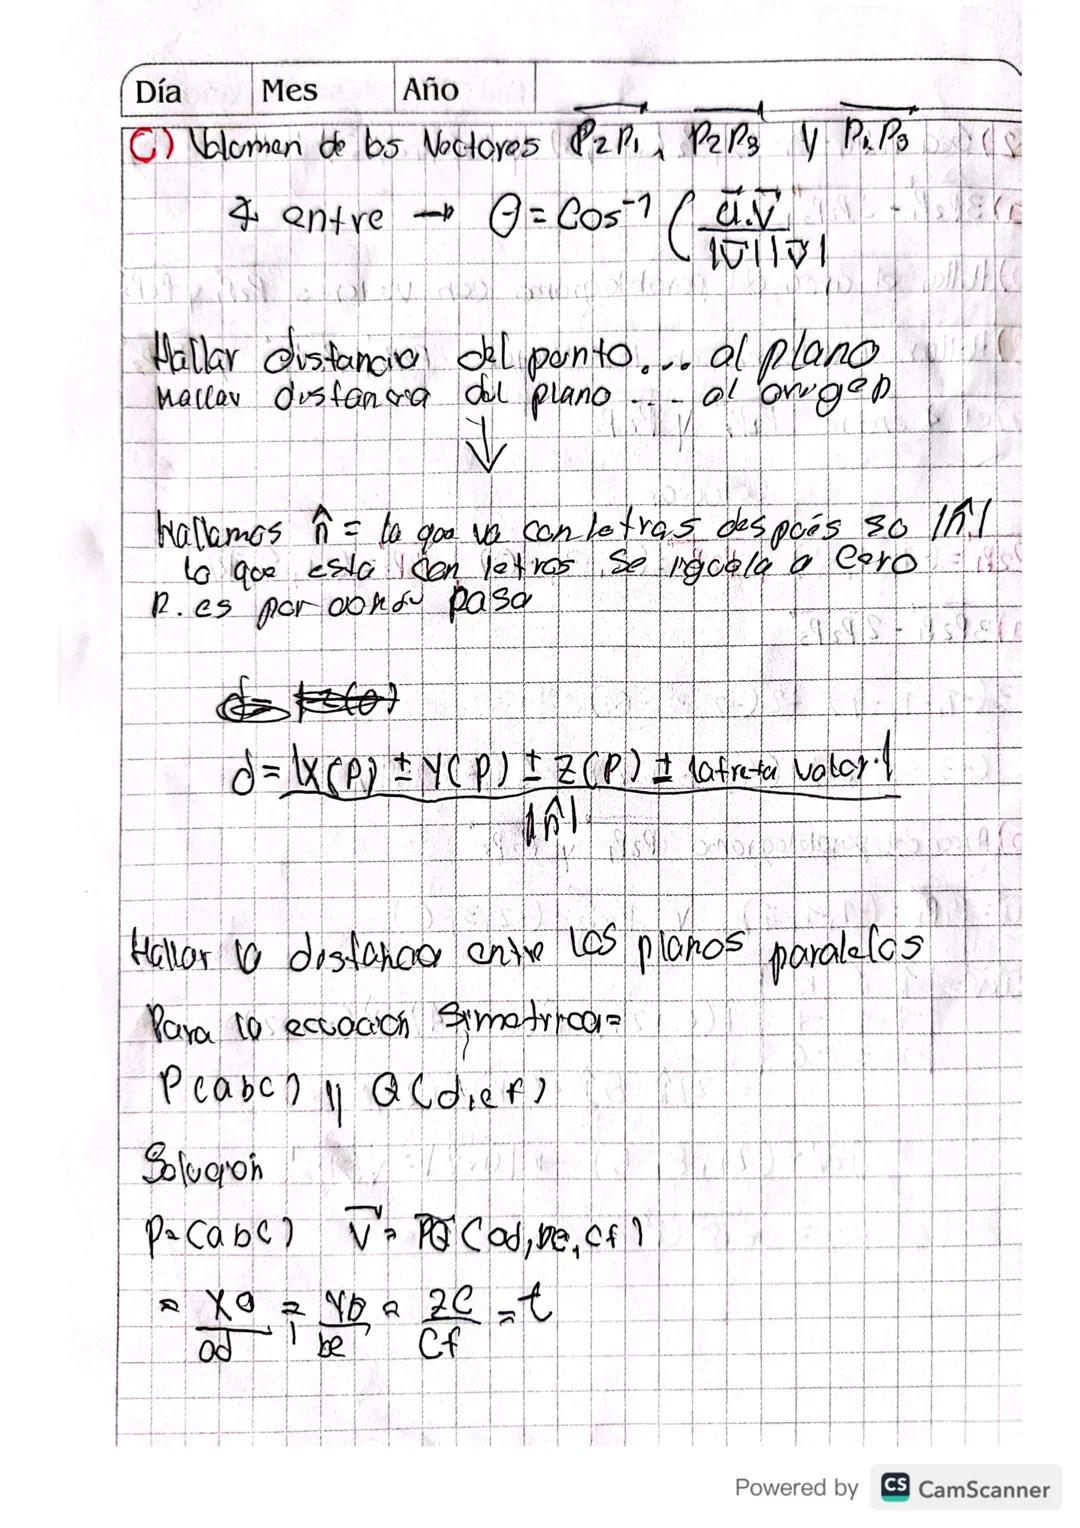 Día Mes Año
C) Volomen de los Vectores P₂P₁, P₂P₃ y P₁P₃
∡ entre → θ = Cos⁻¹ ( u⃗.v⃗ / |v⃗||v⃗|
Hallar distancia del punto... al plano
hallar distancia del plano .... al origen
↓
hallamos n̂ = lo que va con letras después so |n̂|
lo que esta con letras se iguala a cero
P. es por donde pasa
d = |X(P) ± Y(P) ± Z(P) ± valor.| / |n̂|
Hallar la distancia entre los planos paralelos
Para la ecuación Simetrica=
P(abc) || Q(d,e,f)
Solución
P=(abc) V⃗ = PQ (ad, be, cf)
= Xa/ad = Yb/be = Zc/cf = t
Powered by CS CamScanner